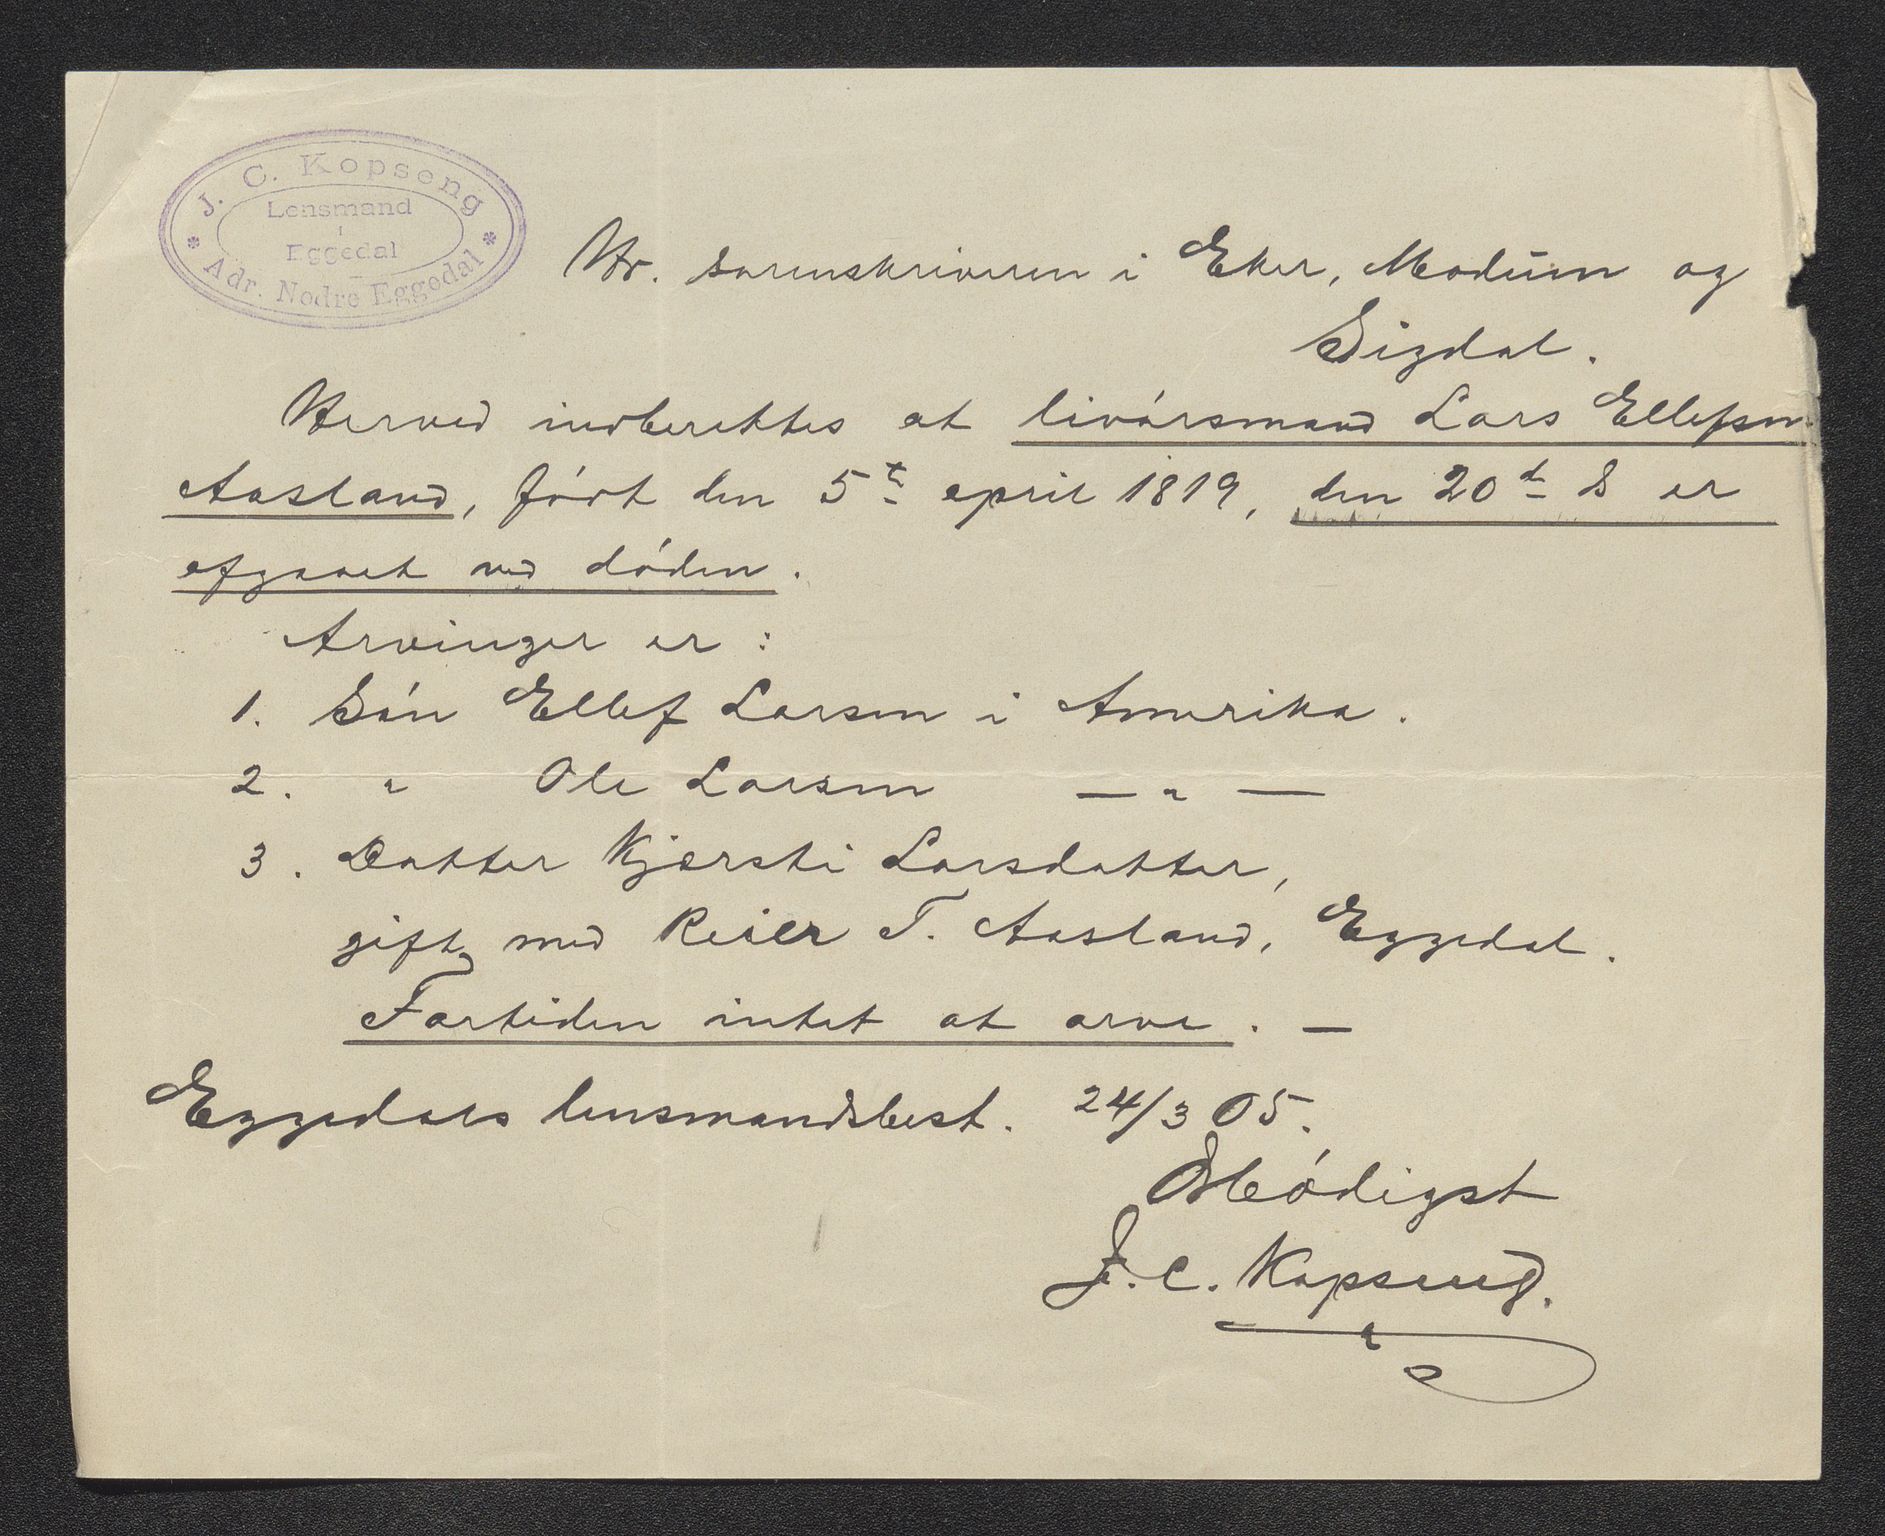 J. C. Kopseng
Lensmand
i
Eggedal
Adr. Nodre Eggedal
Hr. sorenskriveren i Eker, Modum og
Sigdal.
Herved indberettes at livørsmand Lars Ellefsen
Aasland, født den 5te april 1819, den 20de ds er
afgaaet ved døden.
Arvinger er:
1. Søn Ellef Larsen i Amerika.
2. " Ole Larsen — " —
3. Datter Kjersti Larsdatter,
gift med Reier T. Aasland, Eggedal.
Fortiden intet at arve. —
Eggedals lensmandsbest. 24/3 05.
Ærbødigst
J. C. Kopseng.